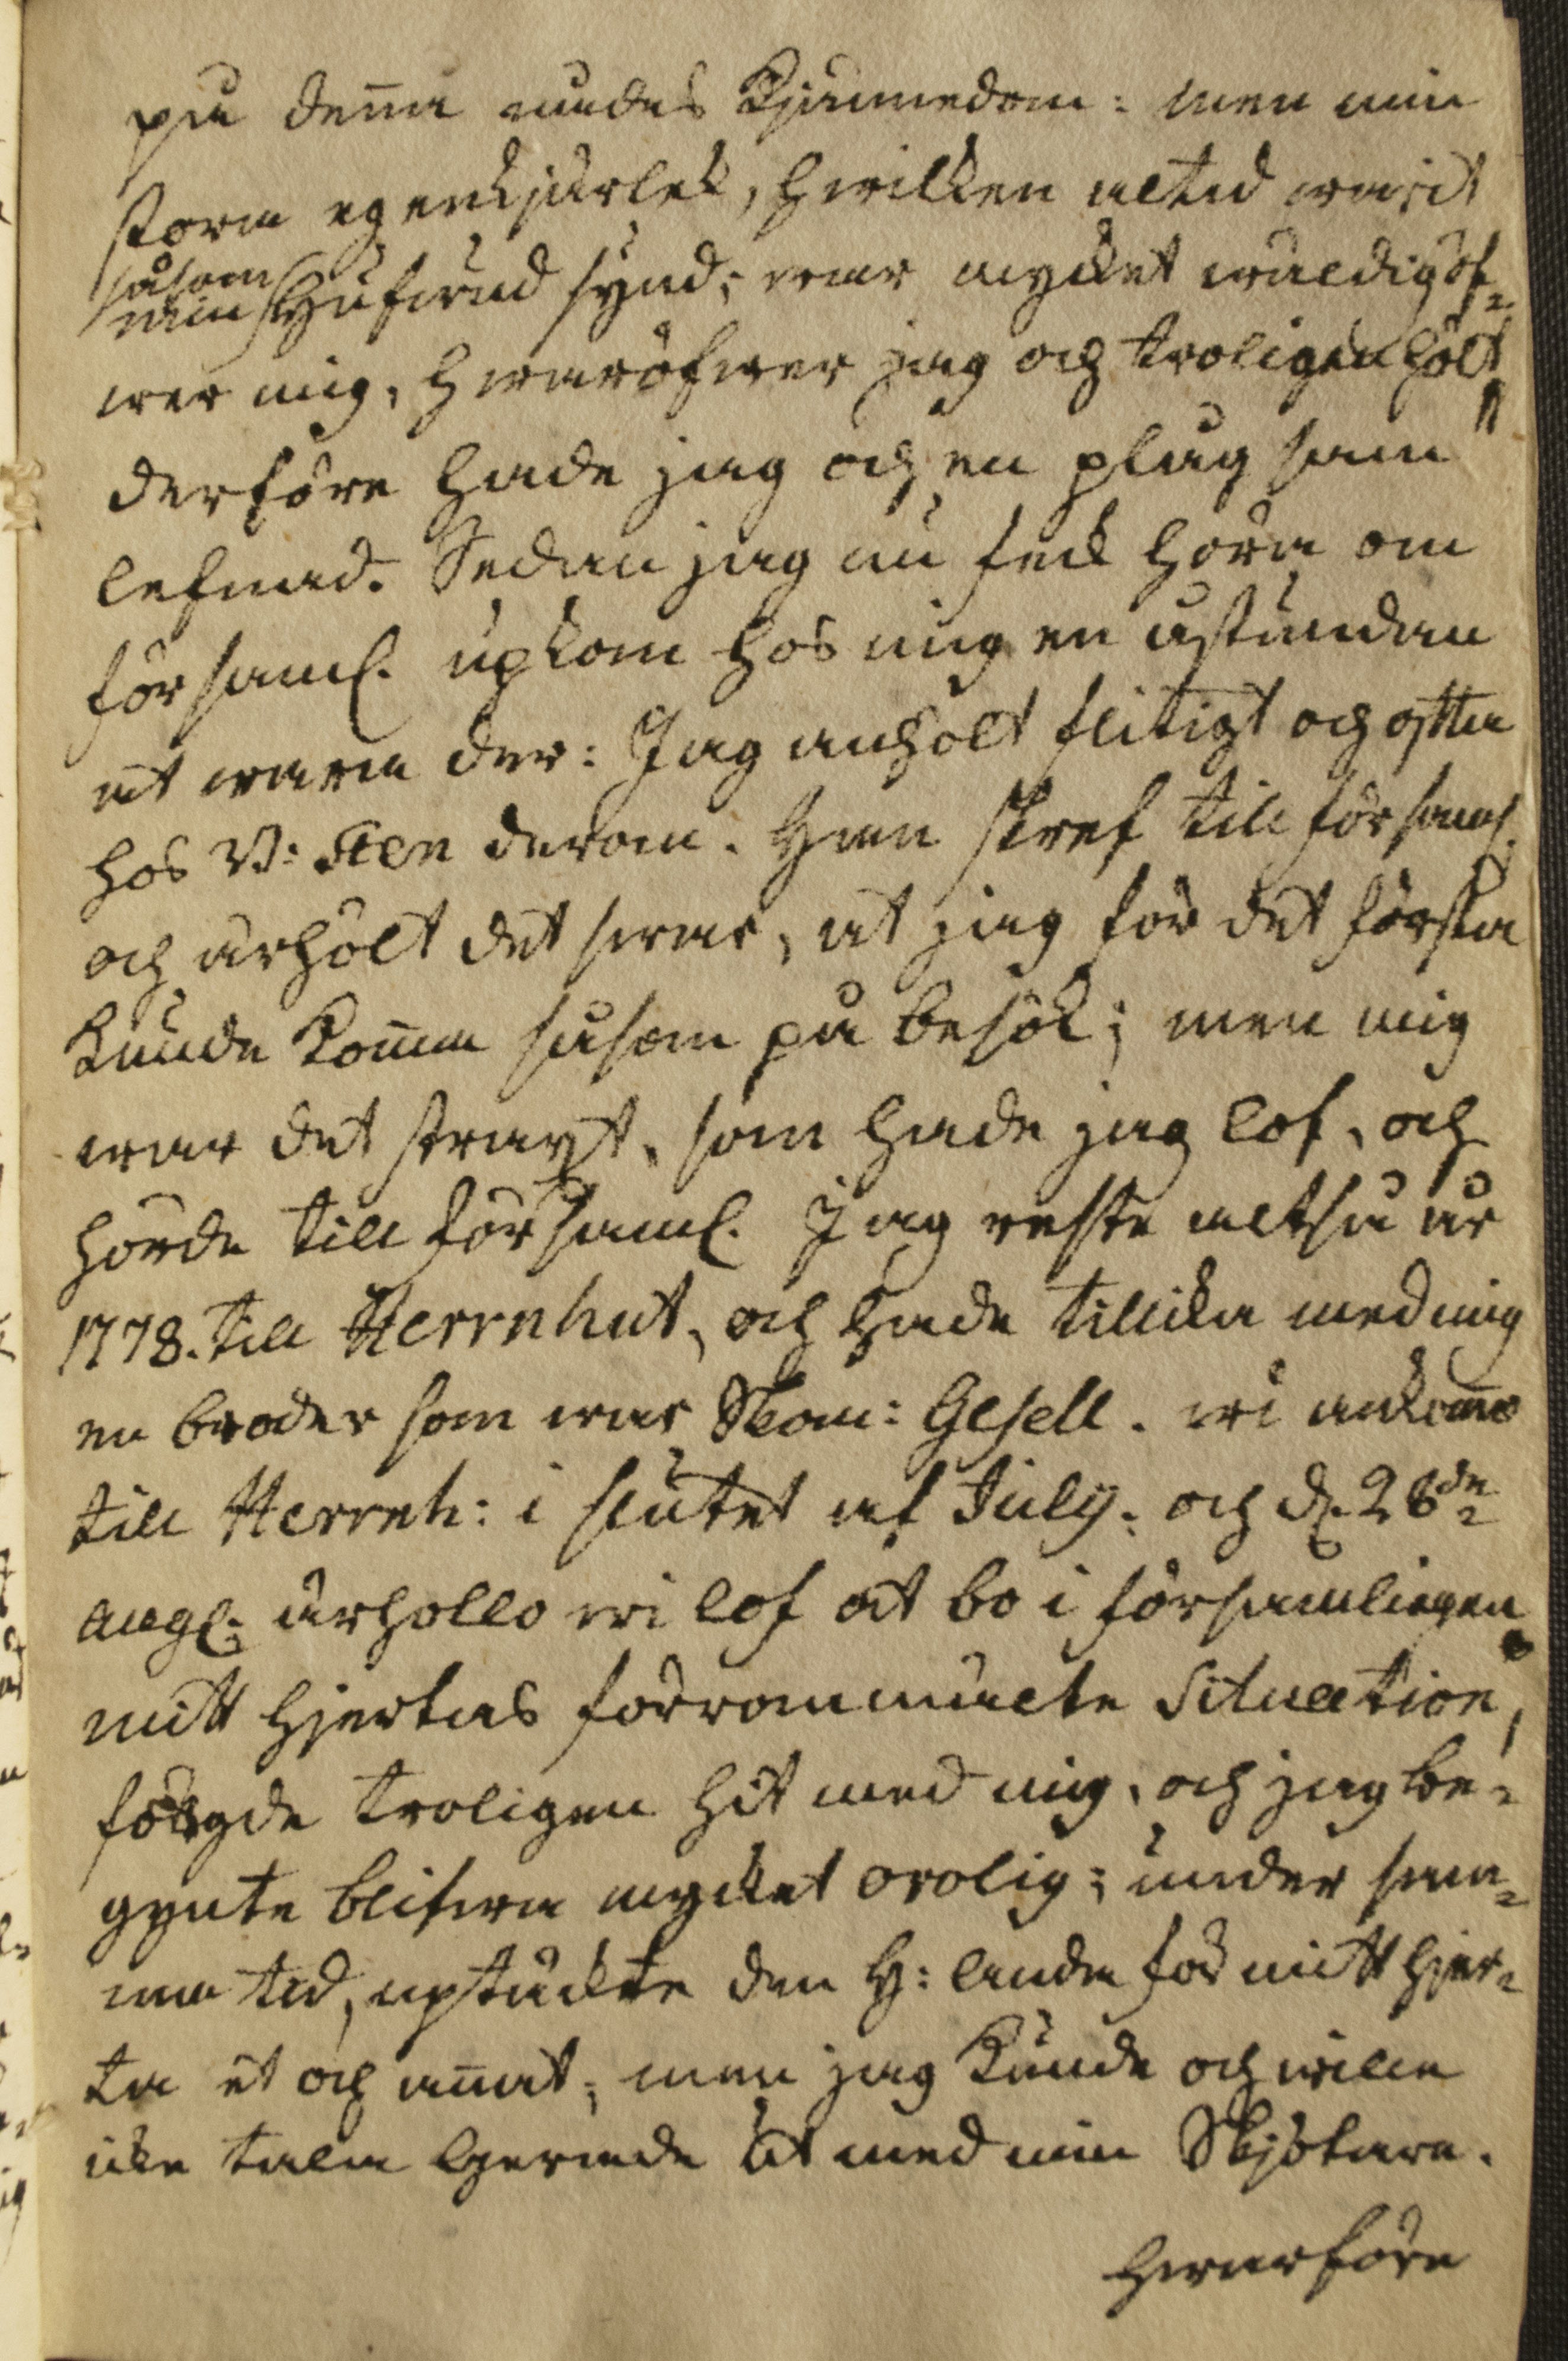 på denna nådes Kjännedom: men min
stora egenkjärlek, hwilken altid warit
såsom
min Hufwud synd; war mycket wäldig öf-
wer mig, hwaröfwer jag och troligen hölt,
derföre hade jag och en plågsam
lefnad. Sedan jag nu feck höra om
församl. upkom hos mig en åstundan
at wara der: Jag anhölt flitigt och ofta
hos B: Sten derom. Han skref till församl.
och ärhölt det swar, at jag för det första
kunde komma såsom på besök; men mig
war det straxt, som hade jag lof, och
hörde till församl. Jag reste altså år
1778. till Herrnhut, och hade tillika med mig
en broder som war Skom: Gesell. wi ankommo
till Herrnh: i slutet af July. och d. 28de
Aug. ärhöllo wi lof at bo i församlingen
mitt hjertas förrommäcte Situation,
fölgde troligen hit med mig, och jag be-
gynte blifwa mycket orolig; under sam-
ma tid, uptäckte den H:lande för mitt hjer-
ta ett och annat; men jag kunde och wille
icke tala gerade ut med min Skjötare.
hwarföre